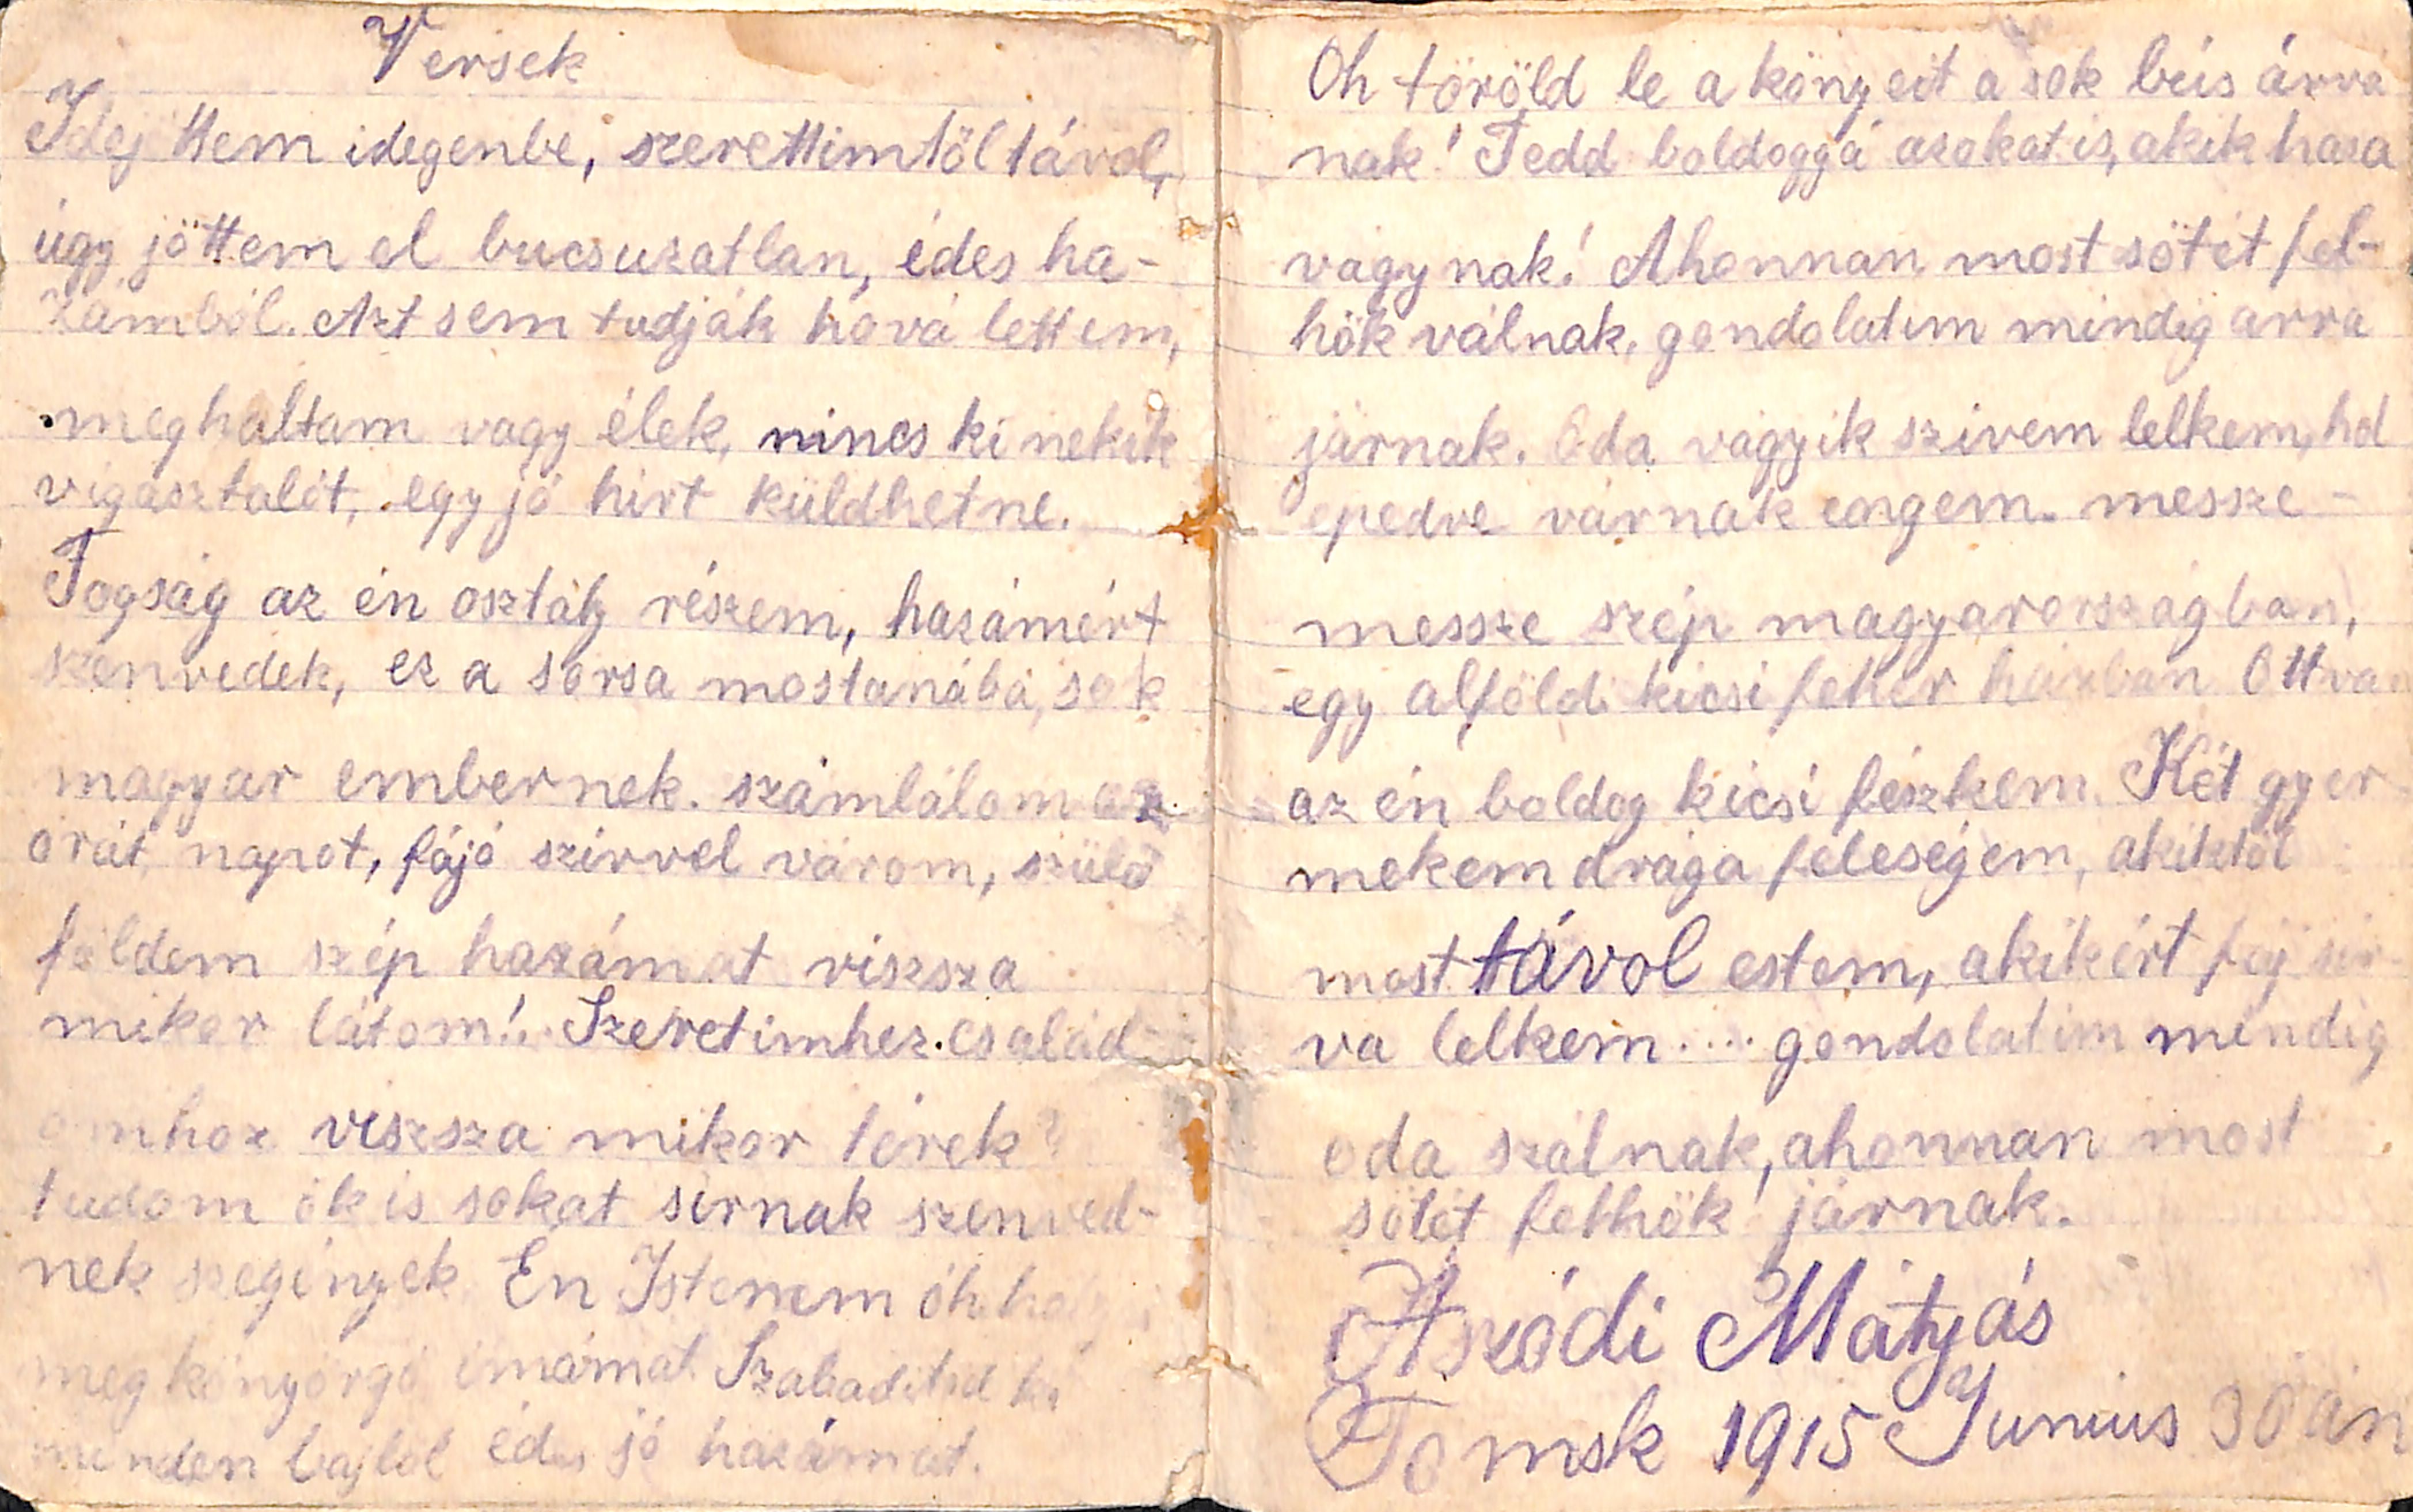 Versek
Idejöttem idegenbe, szerettimtöl távol,
úgy jöttem el bucsuzatlan, édes ha-
zámból. Azt sem tudják hová lettem,
meghaltam vagy élek, nincs ki nekik
vigasztalót, egy jó hirt küldhetne.
Fogság az én osztály részem, hazámért
szenvedek, ez a sorsa mostanába, sok
magyar embernek. számlálom az
órát napot, fájó szivvel várom, szülö
földem szép hazámat viszsza
mikor látom! Szeretimhez család
omhoz viszsza mikor térek?
tudom ök is sokat sirnak szenved-
nek szegények Én Istenem óh
meg könyörgö imámat Szabaditsd ki
minden bajtól édes jó hazámat.
Oh töröld le a könyeit a sok bús árva
nak! Tedd boldoggá azokat is, akik haza
vágynak! Ahonnan most sötét fel-
hök válnak, gondolatim mindig arra
járnak. Oda vágyik szivem lelkem, hol
epedve várnak engem. messze-
messze szép magyarországban,
egy alföldi kicsi fehér házban Ott van
az én boldog kicsi fészkem. Két gyer
mekem drága feleségem, akiktöl
most távol estem, akikért fáj sir-
va lelkem .... gondolatim mindig
oda szálnak, ahonnan most
sötét felhök járnak.
Aszódi Mátyás
Tomsk 1915 Junius 30 án